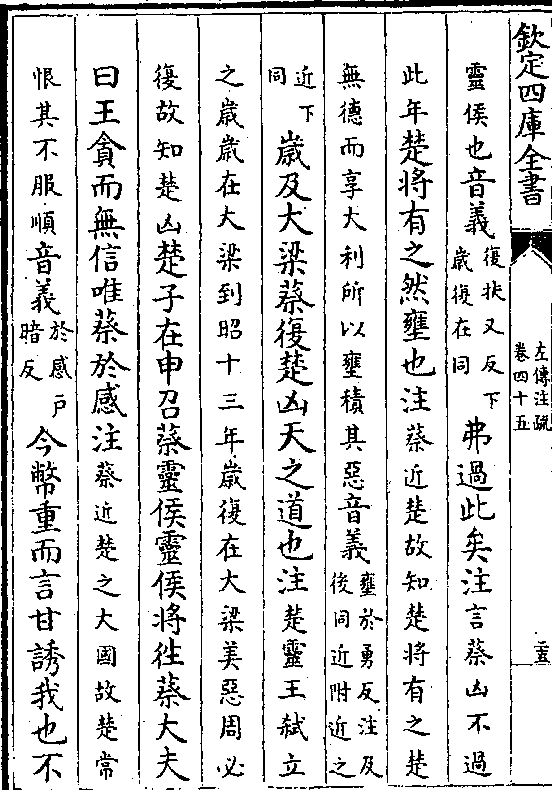 欽定四庫全書
左傳注疏
卷四十五
二五
靈侯也音義復扶又反下
歲復在同弗過此矣注言蔡凶不過
此年楚將有之然壅也注蔡近楚故知楚將有之楚
無德而享大利所以壅積其惡音義壅於勇反注及
後同近附近之
近下
同歲及大梁蔡復楚凶天之道也注楚靈王弑立
之歲歲在大梁到昭十三年歲復在大梁美惡周必
復故知楚凶楚子在申召蔡靈侯靈侯將徃蔡大夫
曰王貪而無信唯蔡於感注蔡近楚之大國故楚常
恨其不服順音義於感戸
暗反今幣重而言甘誘我也不